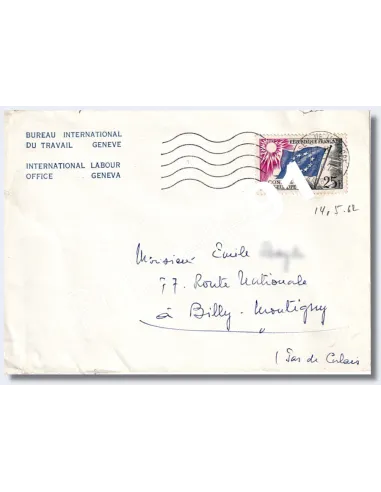 BUREAU INTERNATIONAL
DU TRAVAIL GENEVE
INTERNATIONAL LABOUR
OFFICE GENEVA
REPUBLIQUE FRANÇAISE
25F
14,5.62
Monsieur Emile
57. Route Nationale
à Billy-Montigny
(Pas de Calais